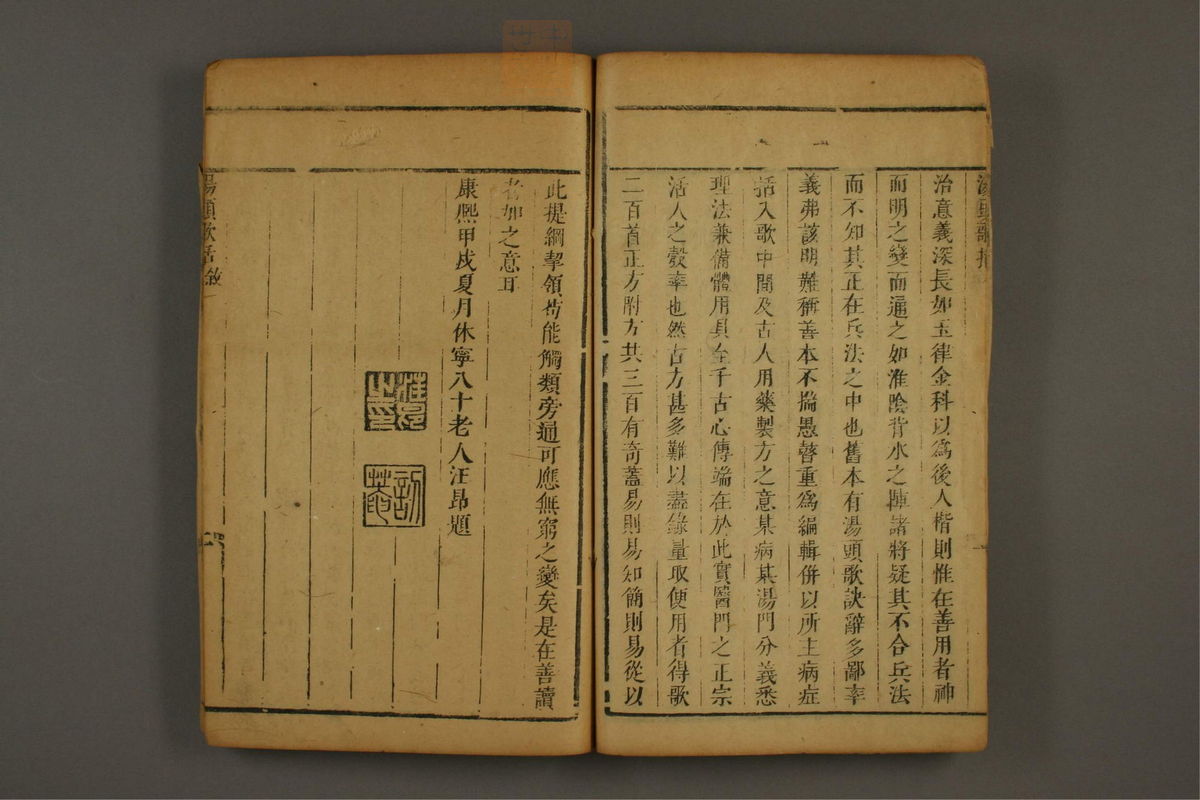 治意義深長如玉律金科以為後人楷則惟在善用者神
而明之變而通之如淮陰背水之陣諸將疑其不合兵法
而不知其正在兵法之中也舊本有湯頭歌訣辭多鄙率
義弗該明難稱善本不揣愚瞽重為編輯併以所主病症
括入歌中間及古人用藥製方之意某病某湯門分義悉
理法兼備體用具全千古心傳端在於此實醫門之正宗
活人之彀率也然古方甚多難以盡錄量取便用者得歌
二百首正方附方共三百有奇蓋易則易知簡則易從以
此提綱挈領苟能觸類旁通可應無窮之變矣是在善讀
者加之意耳
康熙甲戌夏月休寧八十老人汪昂題
汪昂之印
訒菴
湯頭歌括敘
二